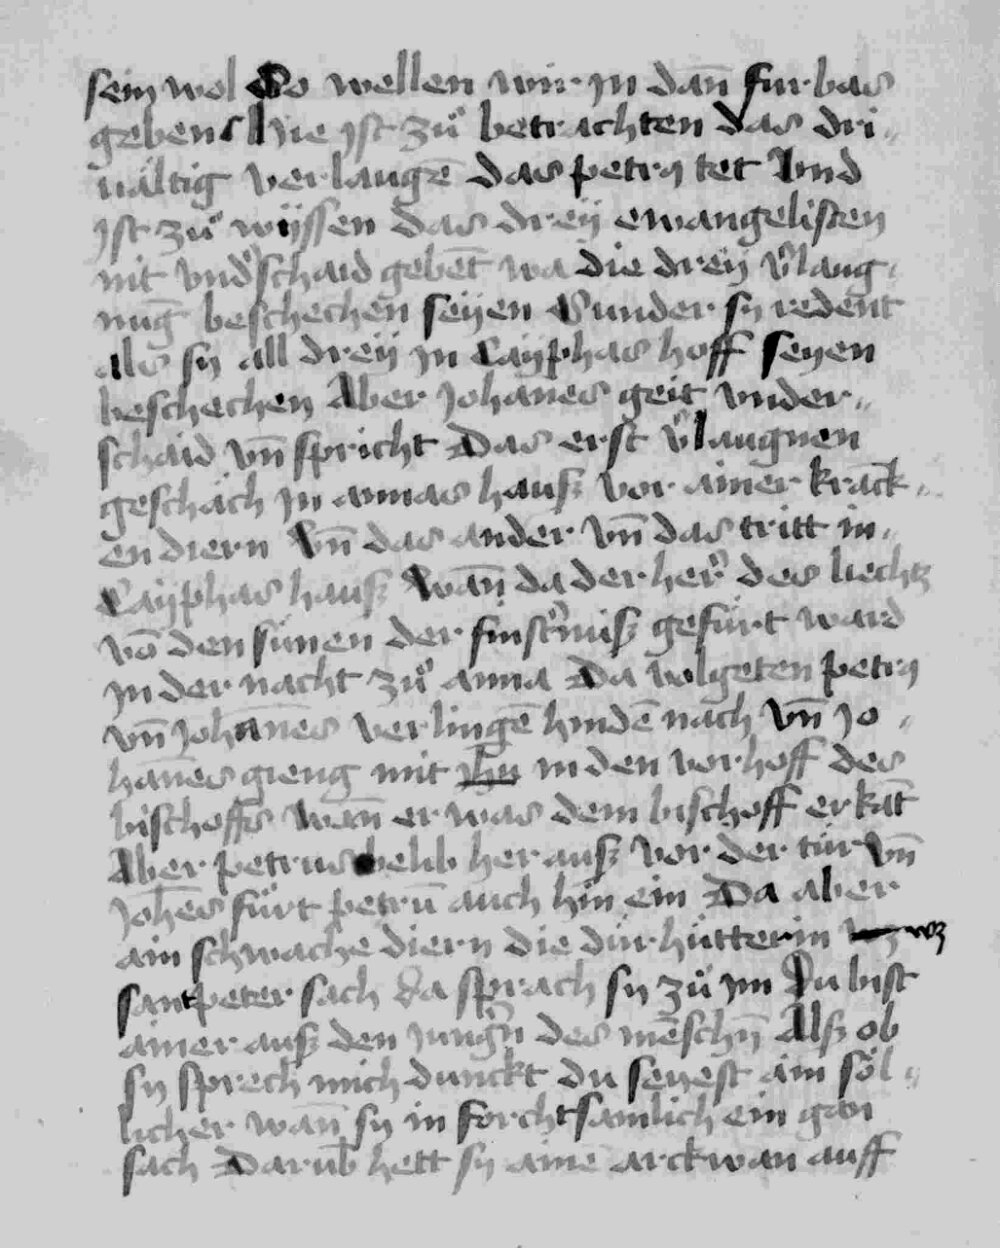 sein wol So wellen wir jn dan̄ fur bas
geben Hie jst zů betrachten das dri„
ualtig verlaugē das petrꝰ tet Vnd
jst zů wÿssen das dreÿ ewangelisten
nit vnd᷑schaid gebēt wa die dreÿ v᷑laug„
nuḡ beschechen̄ seÿen Sunder sy redent
als sy all dreÿ jn Caÿphas hoff seyen
beschechen Aber johānes geit vnder„
schaid vn̄ spricht Das erst v᷑laugnen
geschäch jn annas hauß vor ainer krāck„
en diern Vn̄ das ander vn̄ das tritt in„
Caÿphas hauß Wan̄ da der her᷑ des liechtz
vō den sünen der finst᷑nuß gefürt ward
jn der nacht zů anna Da volgeten petrꝰ
vn̄ johānes verlingē hindē nach Vn̄ jo„
hānes gieng mit jhū in den vorhoff des
bischoffs wan̄ er was dem bischoff erkāt
Aber petrus belib her auß vor der tür Vn̄
joh̄es fürt petrū auch hin ein Da aber
ain schwache diern die dürhütterin wz
sant peter sach da sprach sy zů jm Du bist
ainer auß den jung᷑n des mēschn̄ Alß ob
sy sprech mich dunckt du seyest ain söl„
licher wan̄ sy in forchtsamlich ein gan
sach Darub̄ hett sy aine arckwan auff